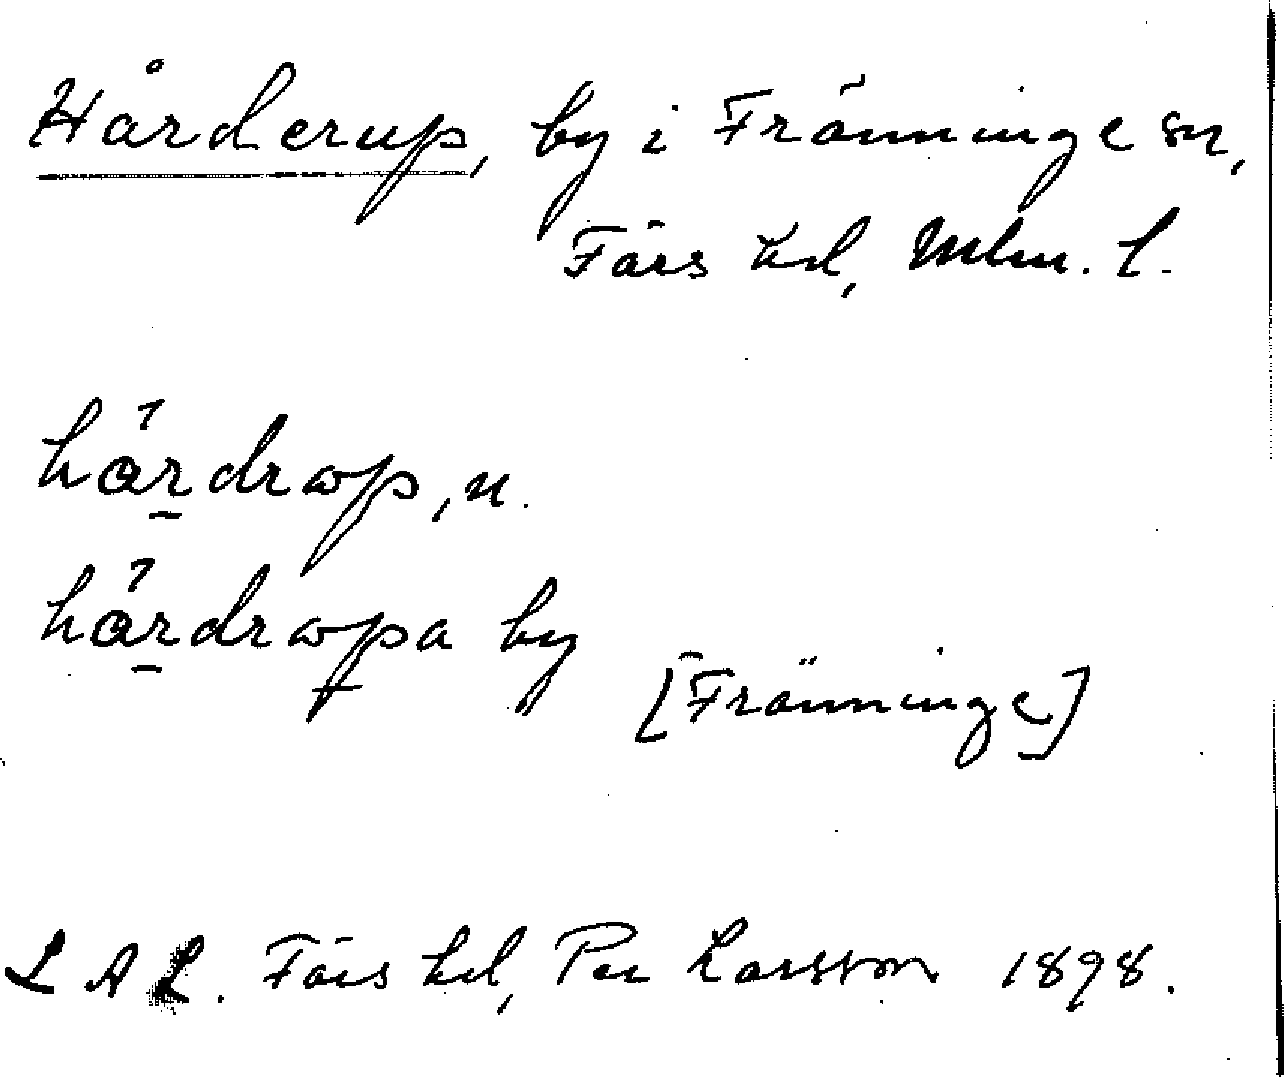 Hårderup, by i Fränninge sn,
Färs hd, Mlm. l.
hårdrωp, n.
hårdrωpa by
[Fränninge]
L A L. Färs hd, Per Larsson 1898.